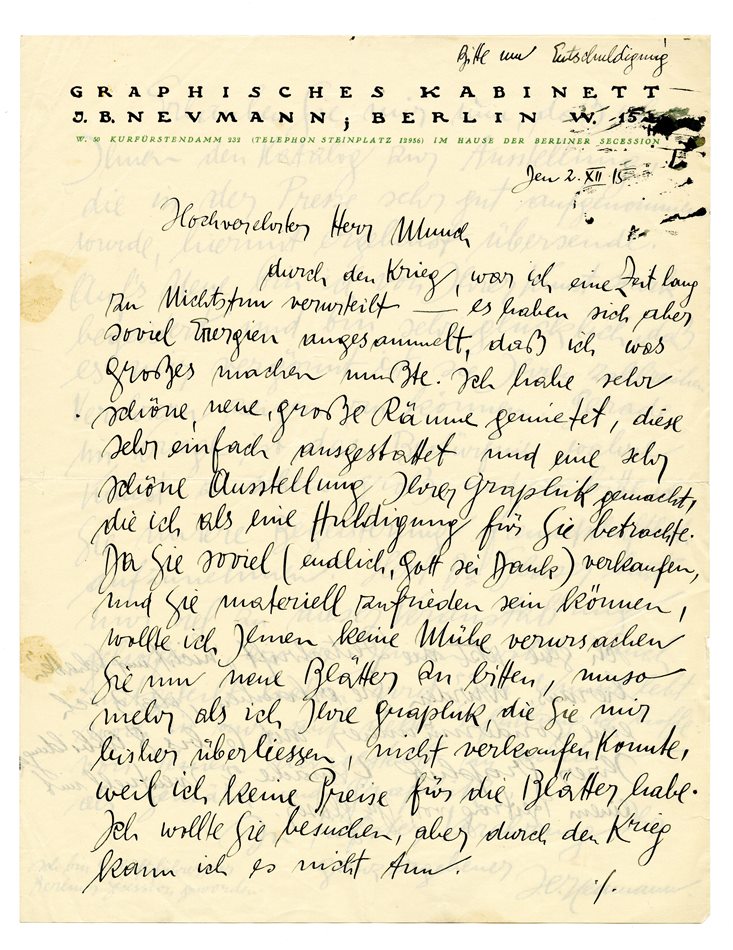 Bitte um Entschuldigung
GRAPHISCHES KABINETT
J.B.NEVMANN; BERLIN W. 15
W. 50 KURFÜRSTENDAMM 232 (TELEPHON STEINPLATZ 13956) IM HAUSE DER BERLINER SECESSION
Den 2. XII 15
Hochverehrter Herr Munch
durch den Krieg, war ich eine Zeit lang
zu Nichtstun verurteilt — es haben sich aber
soviel Energien angesammelt, daß ich was
großes machen mußte. Ich habe sehr
schöne, neue, große Räume gemietet, diese
sehr einfach ausgestattet und eine sehr
schöne Ausstellung Ihrer Graphik gemacht,
die ich als eine Huldigung für Sie betrachte.
Da Sie soviel (endlich, Gott sei Dank) verkaufen,
und Sie materiell zufrieden sein können,
wollte ich Ihnen keine Mühe verursachen
Sie um neue Blätter zu bitten, umso
mehr als ich Ihre Graphik, die Sie mir
bisher überliessen, nicht verkaufen konnte,
weil ich keine Preise für die Blätter habe.
Ich wollte Sie besuchen, aber durch den Krieg
kann ich es nicht tun.
./.